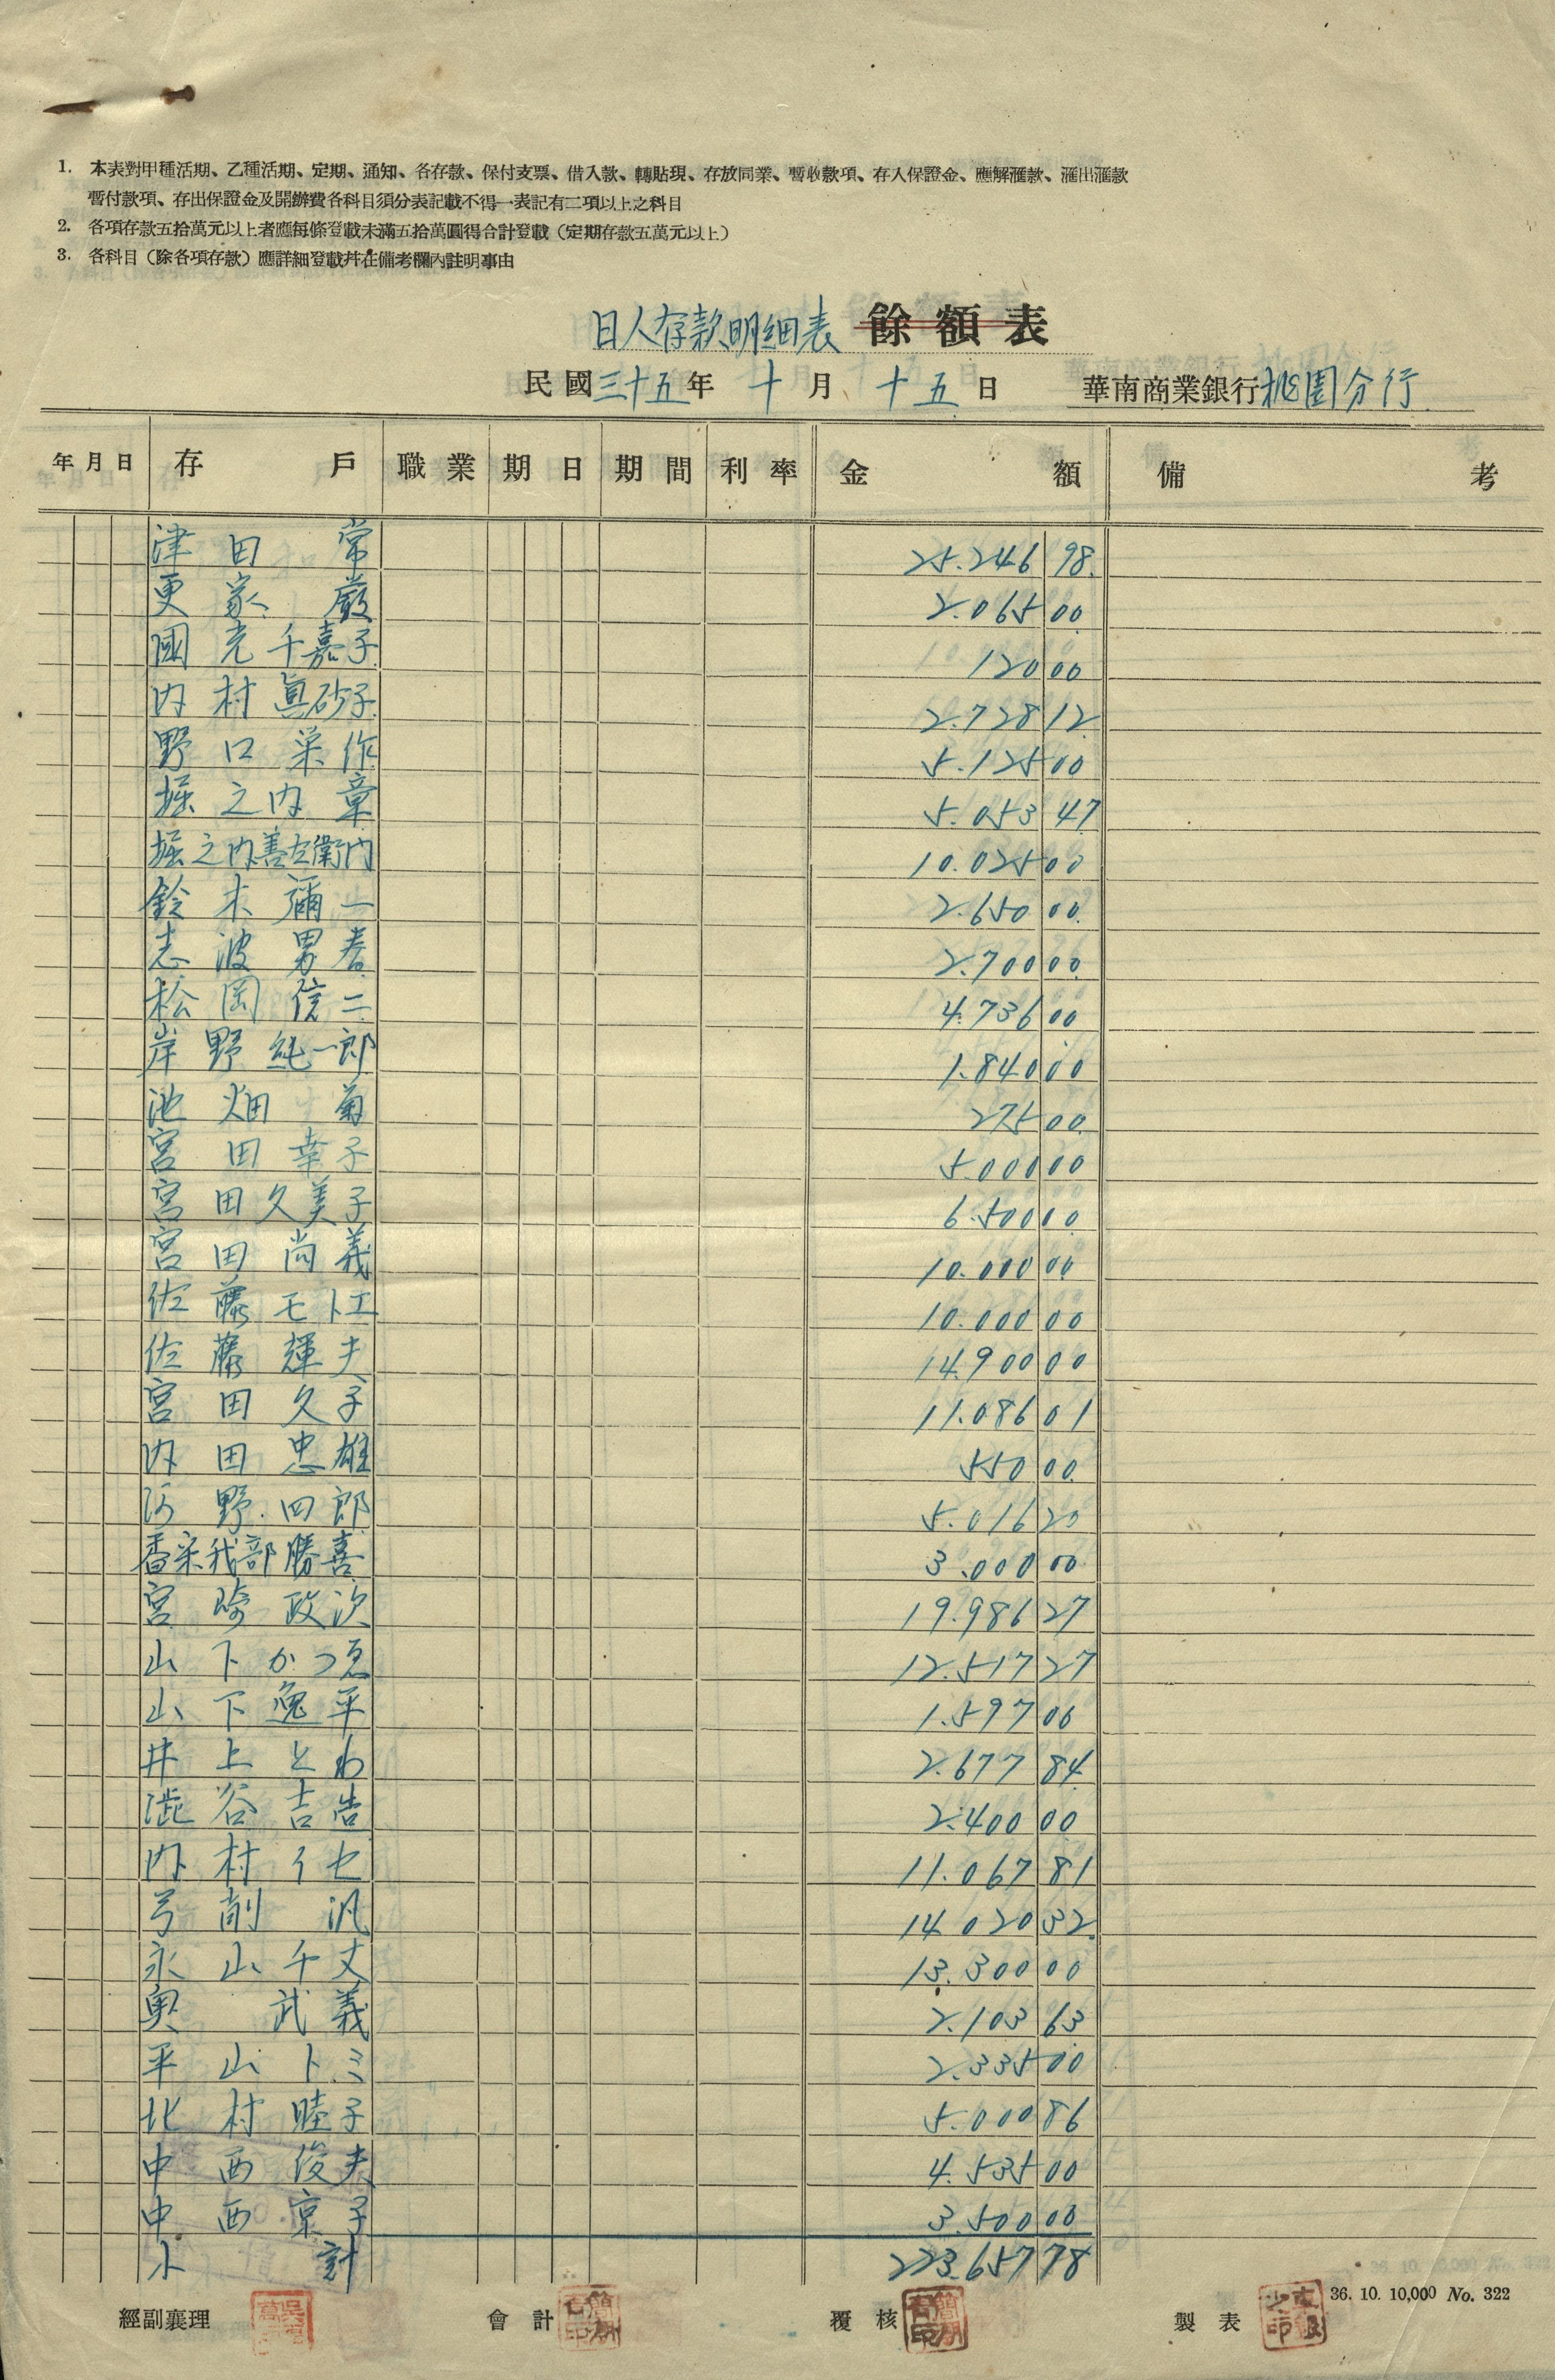 1. 本表對甲種活期、乙種活期、定期、通知、各存款、保付支票、借入款、轉貼現、存放同業、暫收款項、存入保證金、應解滙款、滙出滙款
暫付款項、存出保證金及開辦費各科目須分表記載不得一表記有二項以上之科目
2. 各項存款五拾萬元以上者應每條登載未滿五拾萬圓得合計登載（定期存款五萬元以上）
3. 各科目（除各項存款）應詳細登載幷在備考欄內註明事由
日人存款明細表 餘額表
民國三十五年 十月 十五日 華南商業銀行桃園分行
年月日 存戶 職業 期日 期間 利率 金額 備考
津田 常 25.246 98
更家 嚴 2.065 00
國光千嘉子 120 00
内村眞砂子 2.728 12
野口栄作 5.125 00
堀之内 章 5.053 47
堀之内善左衛門 10.025 00
鈴木彌一 2.650 00
志波男春 2.700 00
松岡信二 4.736 00
岸野純一郎 1.840 00
池畑 菊 275 00
宮田幸子 5.000 00
宮田久美子 6.500 00
宮田尚義 10.000 00
佐藤モトエ 10.000 00
佐藤輝夫 14.900 00
宮田久子 11.086 01
内田忠雄 550 00
河野四郎 5.016 20
香宗我部勝喜 3.000 00
宮崎政次 19.986 27
山下かつゑ 12.517 27
山下逸平 1.597 00
井上とわ 2.677 84
澁谷吉 2.400 00
内村イセ 11.067 81
弓削 汎 14.020 32
永山千丈 13.300 00
奥 武義 2.103 63
平山トミ 2.335 00
北村睦子 5.000 86
中西俊夫 4.535 00
中西京子 3.500 00
小計 223.657 78
36. 10. 10,000 No. 322
經副襄理 會計 覆核 製表